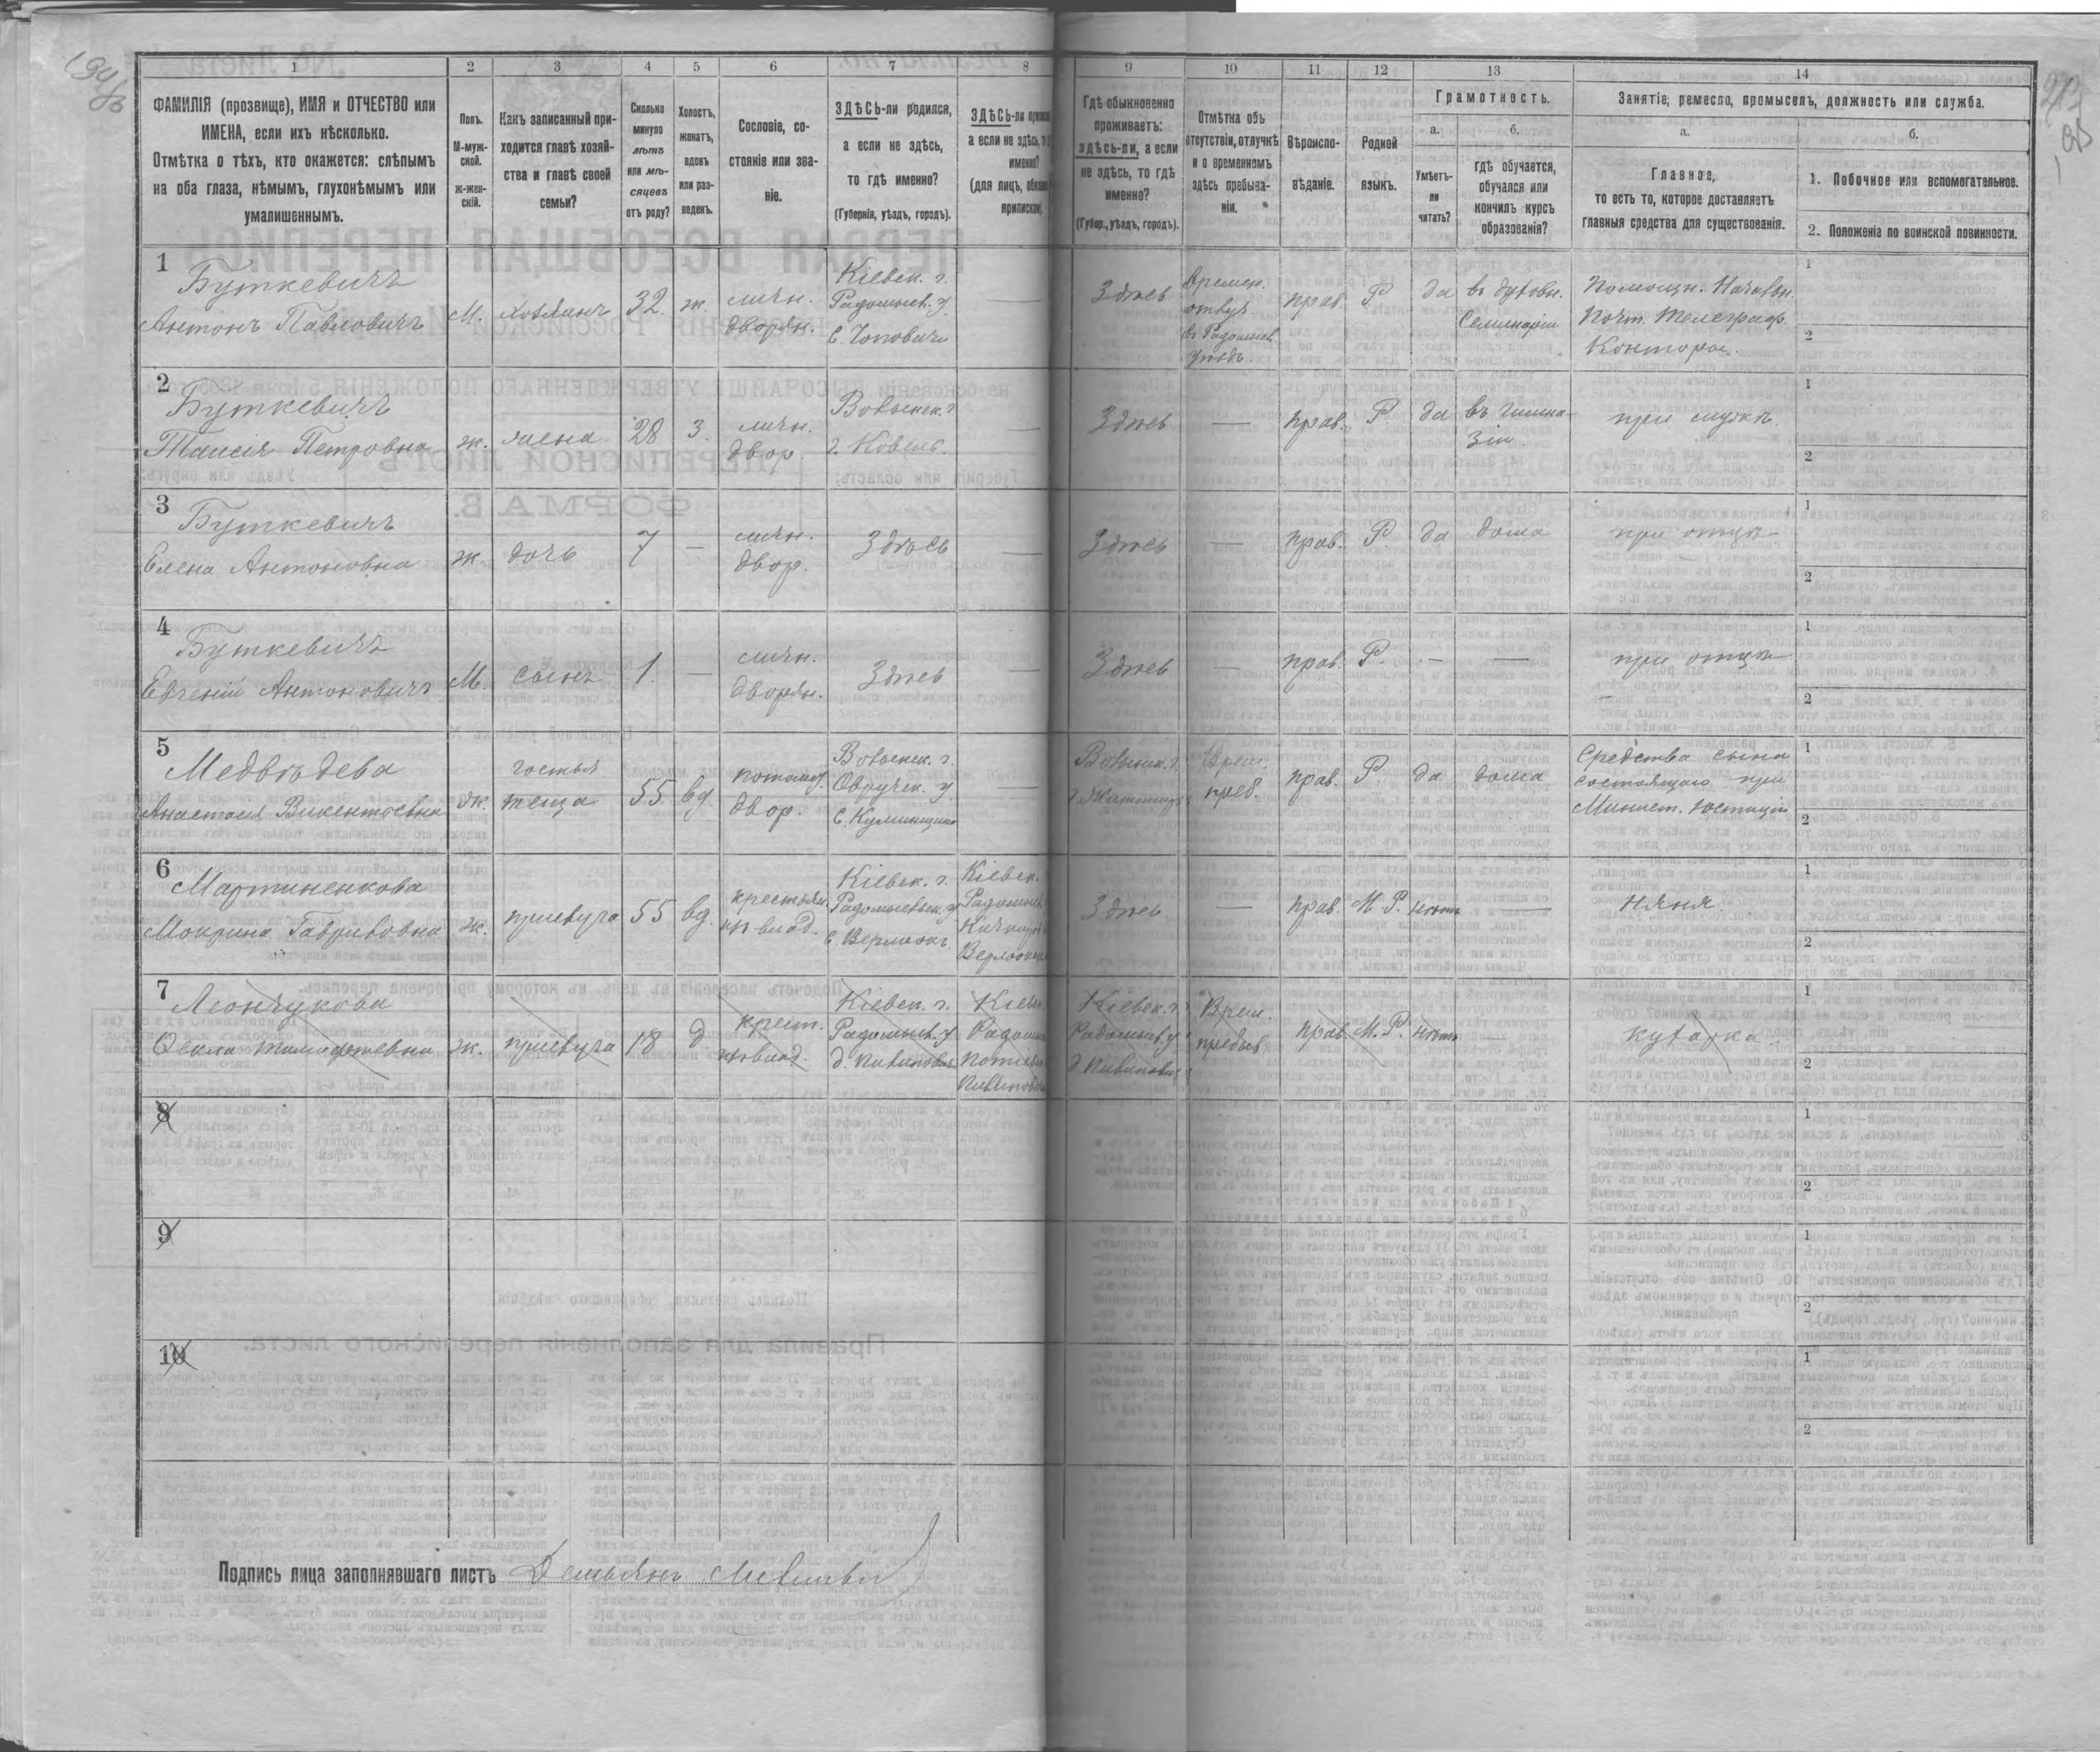 1 2 3 4 5 6 7 8 9 10 11 12 13 14
ФАМИЛІЯ (прозвище), ИМЯ и ОТЧЕСТВО или
ИМЕНА, если ихъ нѣсколько.
Отмѣтка о тѣхъ, кто окажется: слѣпымъ
на оба глаза, нѣмымъ, глухонѣмымъ или
умалишеннымъ.
Полъ.
М-муж-
ской.
ж-жен-
скій.
Какъ записанный при-
ходится главѣ хозяй-
ства и главѣ своей
семьи?
Сколько
минуло
лѣтъ
или мѣ-
сяцевъ
отъ роду?
Холостъ,
женатъ,
вдовъ
или раз-
веденъ.
Сословіе, со-
стояніе или зва-
ніе.
ЗДѢСЬ-ли родился,
а если не здѣсь,
то гдѣ именно?
(Губернія, уѣздъ, городъ).
ЗДѢСЬ-ли
а если не здѣсь,
именно?
(для лицъ,
Гдѣ обыкновенно
проживаетъ:
здѣсь-ли, а если
не здѣсь, то гдѣ
именно?
(Губер., уѣздъ, городъ).
Отмѣтка объ
отсутствіи, отлучкѣ
и о временномъ
здѣсь пребыва-
ніи.
Вѣроиспо-
вѣданіе.
Родной
языкъ.
Грамотность.
а.
Умѣетъ-
ли
читать?
б.
гдѣ обучается,
обучался или
кончилъ курсъ
образованія?
Занятіе, ремесло, промыселъ, должность или служба.
а.
Главное,
то есть то, которое доставляетъ
главныя средства для существованія.
б.
1. Побочное или вспомогательное.
2. Положеніе по воинской повинности.
1
Буткевичъ
Антонъ Павловичъ
М.
хозяинъ
32.
ж.
личн.
дворян.
Кіевск. г.
Радомысл. у.
с. Чоповичи
—
Здѣсь
Времен.
отлуч.
въ Радомысл.
уѣздъ.
прав.
Р.
да
въ духовн.
Семинаріи
Помощн. Начальн.
Почт. Телеграф.
Конторы.
1
2
2
Буткевичъ
Таисія Петровна
ж.
жена
28
з.
личн.
двор.
Волынск. г.
г. Ковель.
—
Здѣсь
—
прав.
Р.
да
въ гимна-
зіи.
при мужѣ.
1
2
3
Буткевичъ
Елена Антоновна
ж.
дочь
7
—
личн.
двор.
Здѣсь
—
Здѣсь
—
прав.
Р.
да
дома
при отцѣ
1
2
4
Буткевичъ
Евгеній Антоновичъ
М.
сынъ
1.
—
личн.
дворян.
Здѣсь
—
Здѣсь
—
прав.
Р.
—
—
при отцѣ
1
2
5
Медвѣдева
Анастасія Викентьевна
ж.
гостья
теща
55
вд.
потом.
двор.
Волынск. г.
Овручск. у.
—
Волынск. г.
г. Житомиръ
Врем.
преб.
прав.
Р.
да
дома
Средства сына
состоящаго при
Минист. Юстиціи
1
2
6
Мартиненкова
Мокрина Гавриловна
ж.
прислуга
55
вд.
крестьян.
Кіевск. г.
Радомысльск. у.
Кіевск.
Здѣсь
—
прав.
М. Р.
нѣтъ
—
няня
1
2
7
Леончукова
Ѳекла Тимофеевна
ж.
прислуга
18
д
крест.
Кіевск. г.
Радомысл. у.
Кіевск.
Кіевск. г.
Радомысл. у.
Врем.
пребыв.
прав.
М. Р.
нѣтъ
—
кухарка
1
2
8
1
2
9
1
2
10
1
2
Подпись лица заполнявшаго листъ